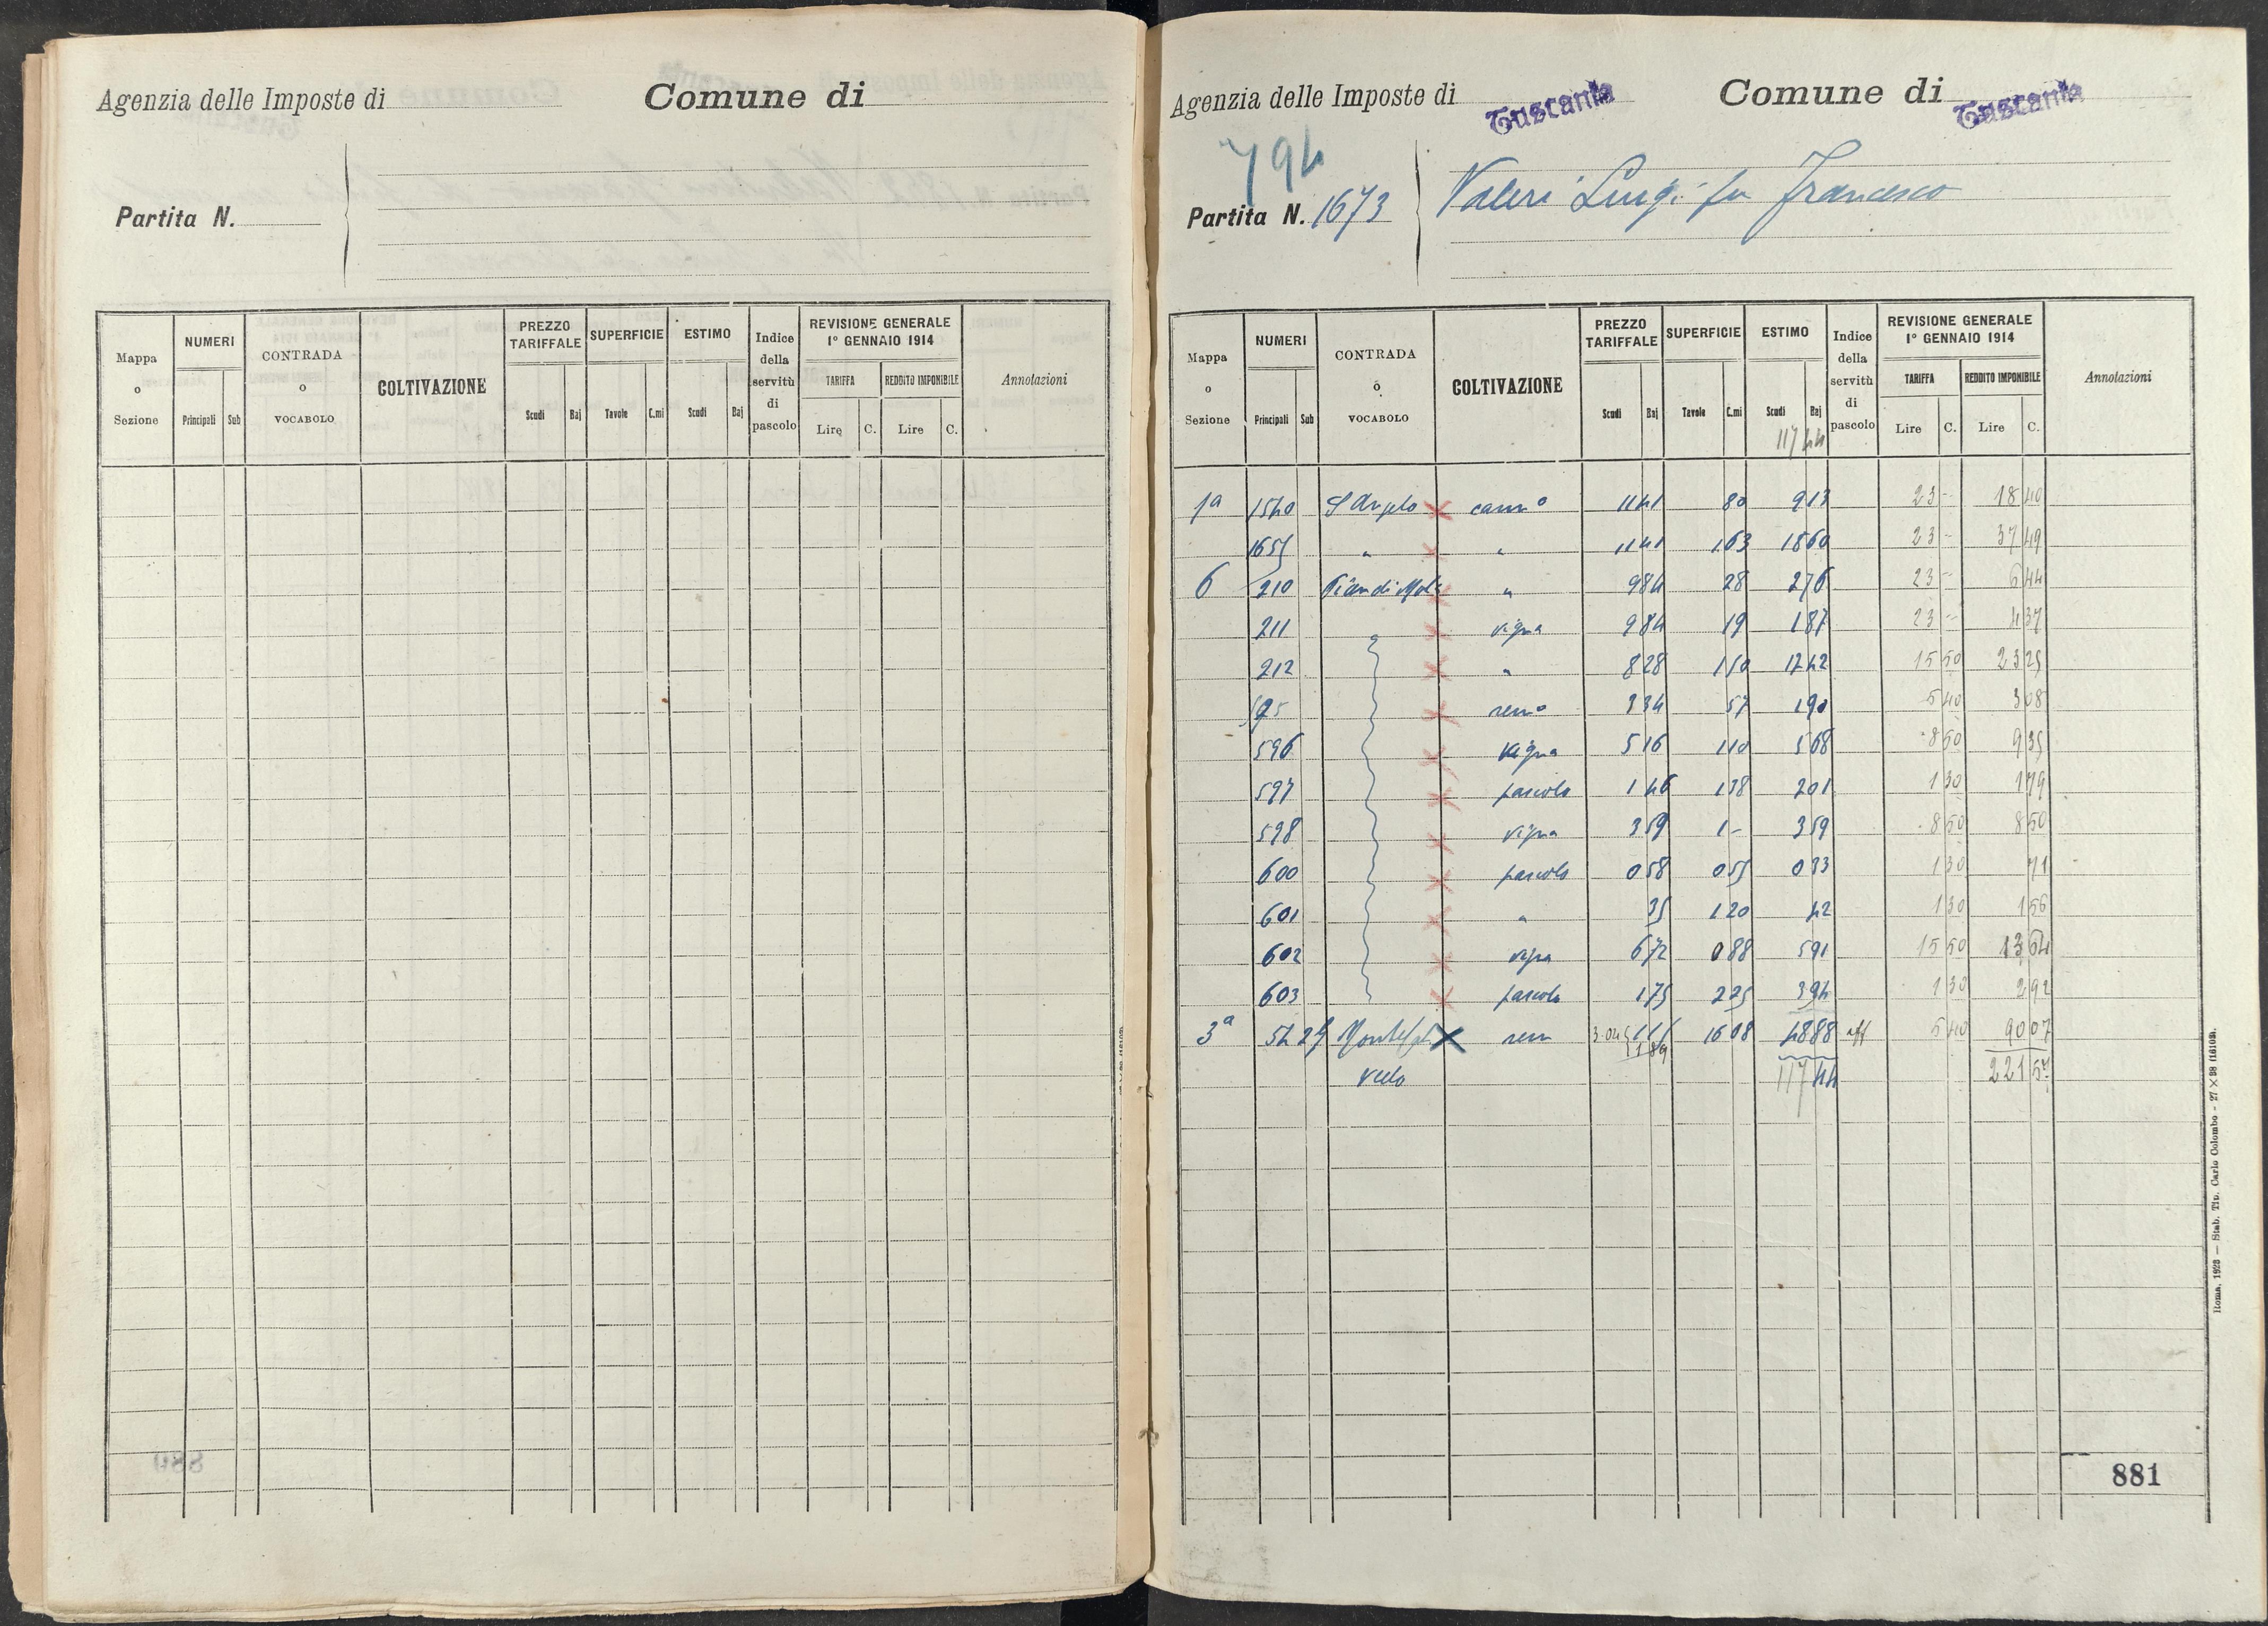 Agenzia delle Imposte di
Comune di
Partita N.
Mappa o Sezione
NUMERI
Principali Sub
CONTRADA o VOCABOLO
COLTIVAZIONE
PREZZO TARIFFALE
Scudi Baj
SUPERFICIE
Tavole C.mi
ESTIMO
Scudi Baj
Indice della servitù di pascolo
REVISIONE GENERALE 1º GENNAIO 1914
TARIFFA
Lire C.
REDDITO IMPONIBILE
Lire C.
Annotazioni
Agenzia delle Imposte di Tuscania
Comune di Tuscania
794
Partita N. 1673
Valeri Luigi fu Francesco
Mappa o Sezione
NUMERI
Principali Sub
CONTRADA o VOCABOLO
COLTIVAZIONE
PREZZO TARIFFALE
Scudi Baj
SUPERFICIE
Tavole C.mi
ESTIMO
Scudi Baj
117 44
Indice della servitù di pascolo
REVISIONE GENERALE 1º GENNAIO 1914
TARIFFA
Lire C.
REDDITO IMPONIBILE
Lire C.
Annotazioni
1a 1540 S Angelo x cann o 11 41 80 9 13 23 - 18 40
1655 " x " 11 41 1 63 18 60 23 - 37 49
6 210 Pian di Mola x " 9 84 28 2 76 23 - 6 44
211 x vigna 9 84 19 1 87 23 - 4 37
212 x " 8 28 1 50 12 42 15 50 23 25
595 x sem o 3 34 57 1 90 5 40 3 08
596 x vigna 5 16 1 10 5 68 8 50 9 35
597 x pascolo 1 46 1 38 2 01 1 30 1 79
598 x vigna 3 59 1 - 3 59 8 50 8 50
600 x pascolo 0 58 0 55 0 33 1 30 71
601 x " 35 1 20 42 1 30 1 56
602 x vigna 6 72 0 88 5 91 15 50 13 64
603 x pascolo 1 75 2 25 3 94 1 30 2 92
3a 5 x sem 3.04 1 89 16 68 48 88 aff 5 40 90 07
117 44 221 57
881
Roma, 1923 — Stab. Tip. Carlo Colombo - 27 × 38 (1610)